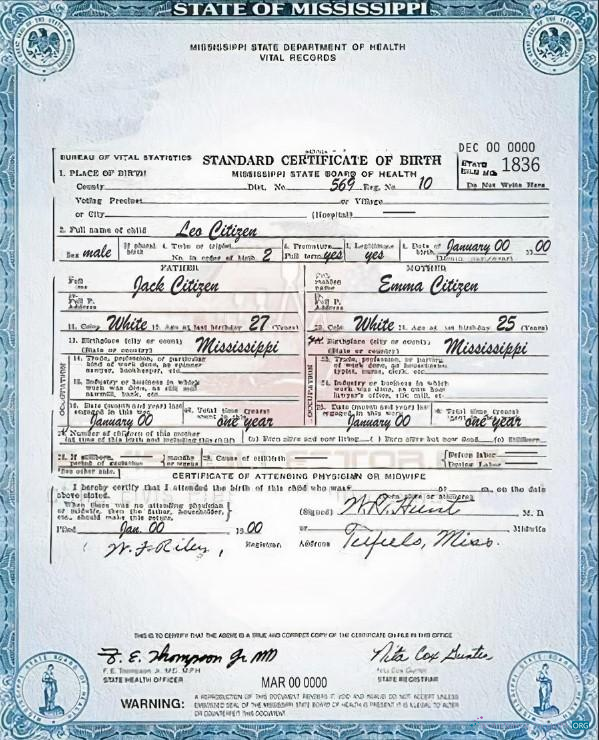 STATE OF MISSISSIPPI
MISSISSIPPI STATE DEPARTMENT OF HEALTH
VITAL RECORDS
DEC 00 0000
BUREAU OF VITAL STATISTICS STANDARD CERTIFICATE OF BIRTH STATE FILE NO. 1836
1. PLACE OF BIRTH MISSISSIPPI STATE BOARD OF HEALTH
County Dist. No. 569 Reg. No. 10 Do Not Write Here
Voting Precinct or Village
or City (Hospital)
2. Full name of child Leo Citizen
Sex male If plural birth 4. Twin or triplet No. in order of birth 2 6. Premature Full term yes 7. Legitimate yes 8. Date of birth January 00 00
FATHER MOTHER
Full Jack Citizen Full maiden name Emma Citizen
Full P. Address Full P. Address
11. Color White 12. Age at last birthday 27 (Years) 20. Color White 21. Age at last birthday 25 (Years)
13. Birthplace (city or county) (State or country) Mississippi Birthplace (city or county) (State or country) Mississippi
OCCUPATION
14. Trade, profession, or particular kind of work done, as spinner sawyer, bookkeeper, etc.
15. Industry or business in which work was done, as silk mill sawmill, bank, etc.
Date (month and year) last engaged in this work January 00 Total time (years) one year
OCCUPATION
Trade, profession, or particu kind of work done, as housekeeper typist, nurse, clerk, etc.
Industry or business in which work was done, as own home lawyer's office, silk mill, etc.
Date (month and year) last engaged in this work January 00 Total time (years) one year
Number of children of this mother
(at time of this birth and including this child) (a) Born alive and now living (b) Born alive but now dead (c) Stillborn
28. If stillborn, period of gestation months or weeks 29. Cause of stillbirth Before labor During Labor
CERTIFICATE OF ATTENDING PHYSICIAN OR MIDWIFE
I hereby certify that I attended the birth of this child who was or m. on the date
above stated.
When there was no attending physician or midwife, then the father, householder, etc. should make this return.
(Signed) W.R. Hunt M. D
or Midwife
Filed Jan. 00 19 00
W. F. Riley, Registrar Address Miss.
THIS IS TO CERTIFY THAT THE ABOVE IS A TRUE AND CORRECT COPY OF THE CERTIFICATE ON FILE IN THIS OFFICE
F. E. Thompson Jr MD Nita Cox Gunter
F. E. Thompson Jr. MD, MPH Nita Cox Gunter
STATE HEALTH OFFICER STATE REGISTRAR
MAR 00 0000
WARNING: A REPRODUCTION OF THIS DOCUMENT RENDERS IT VOID AND INVALID. DO NOT ACCEPT UNLESS
EMBOSSED SEAL OF THE MISSISSIPPI STATE BOARD OF HEALTH IS PRESENT. IT IS ILLEGAL TO ALTER
OR COUNTERFEIT THIS DOCUMENT.
ORG